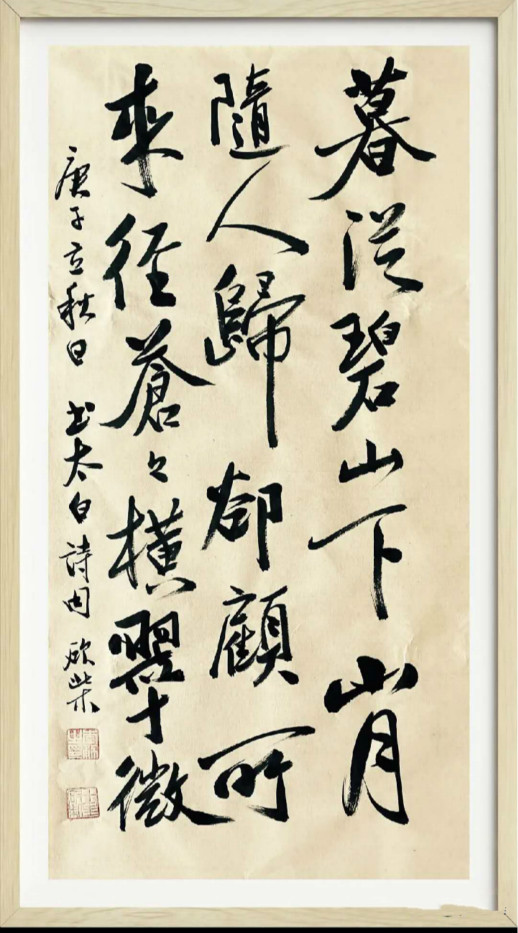 暮從碧山下山月
隨人歸卻顧所
來徑蒼々橫翠微
庚子立秋日 書太白詩句